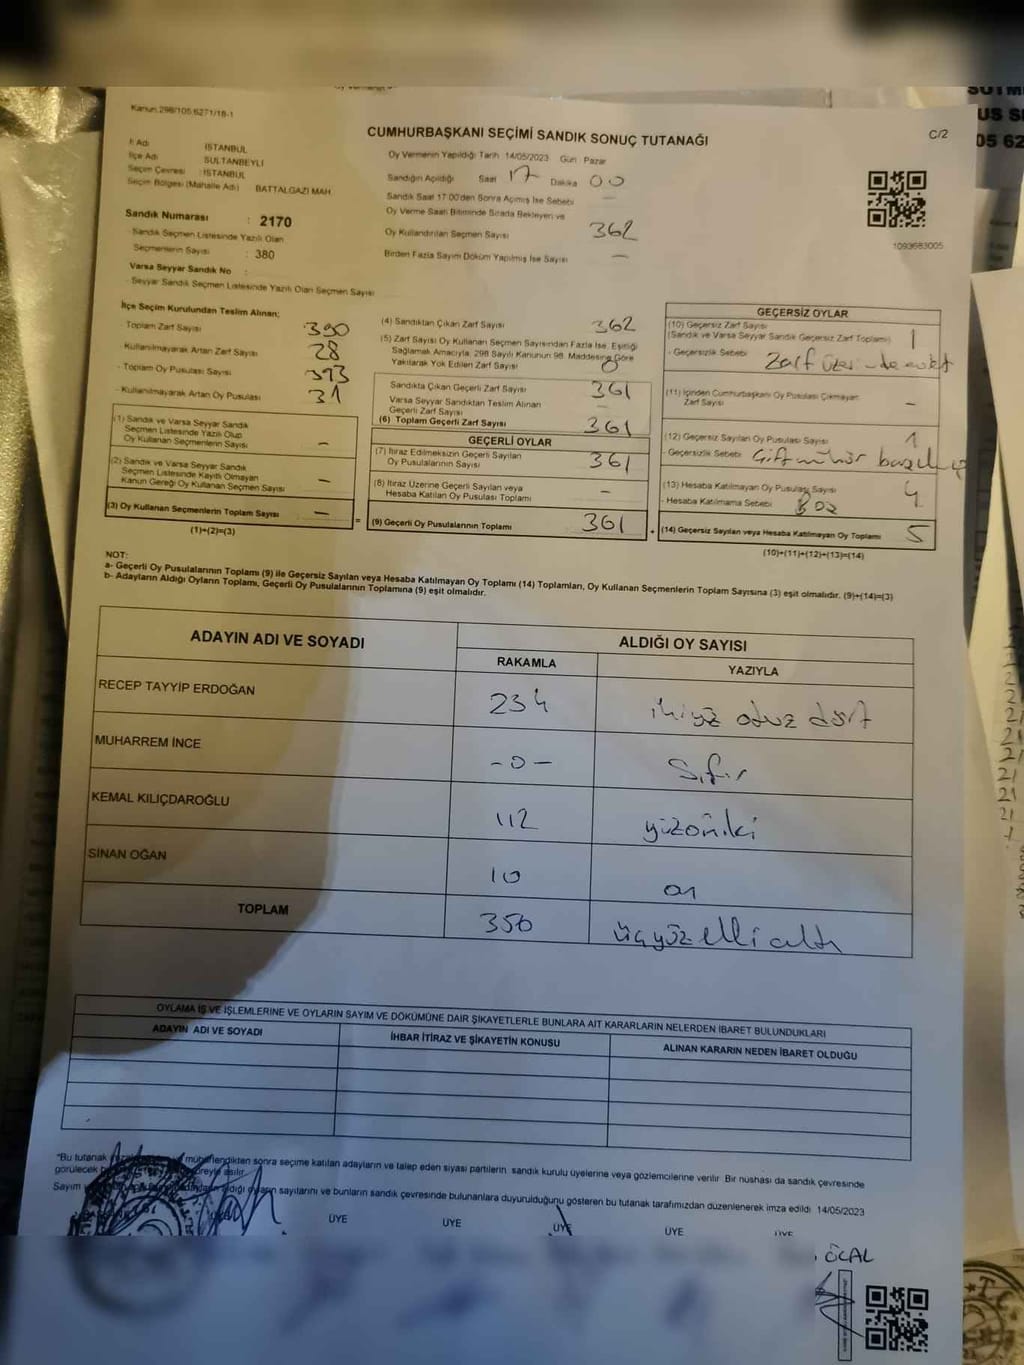 Kanun 298/105 6271/18-1
CUMHURBAŞKANI SEÇİMİ SANDIK SONUÇ TUTANAĞI
C/2
İl Adı İSTANBUL
İlçe Adı SULTANBEYLİ
Seçim Çevresi : İSTANBUL
Seçim Bölgesi (Mahalle Adı) BATTALGAZİ MAH.
Sandık Numarası : 2170
Sandık Seçmen Listesinde Yazılı Olan
Seçmenlerin Sayısı : 380
Varsa Seyyar Sandık No :
Seyyar Sandık Seçmen Listesinde Yazılı Olan Seçmen Sayısı
Oy Vermenin Yapıldığı Tarih 14/05/2023 Gün Pazar
Sandığın Açıldığı Saat 17 Dakika 00
Sandık Saat 17.00'den Sonra Açımış İse Sebebi —
Oy Verme Saati Bitiminde Sırada Bekleyen ve
Oy Kullandırılan Seçmen Sayısı 362
Birden Fazla Sayım Döküm Yapılmış İse Sayısı —
1093683005
İlçe Seçim Kurulundan Teslim Alınan:
- Toplam Zarf Sayısı 390
- Kullanılmayarak Artan Zarf Sayısı 28
- Toplam Oy Pusulası Sayısı 393
- Kullanılmayarak Artan Oy Pusulası 31
(1) Sandık ve Varsa Seyyar Sandık
Seçmen Listesinde Yazılı Olup
Oy Kullanan Seçmenlerin Sayısı —
(2) Sandık ve Varsa Seyyar Sandık
Seçmen Listesinde Kayıtlı Olmayan
Kanun Gereği Oy Kullanan Seçmen Sayısı —
(3) Oy Kullanan Seçmenlerin Toplam Sayısı —
(1)+(2)=(3)
(4) Sandıktan Çıkan Zarf Sayısı 362
(5) Zarf Sayısı Oy Kullanan Seçmen Sayısından Fazla İse, Eşitliği
Sağlamak Amacıyla, 298 Sayılı Kanunun 98. Maddesine Göre
Yakılarak Yok Edilen Zarf Sayısı 0
Sandıkta Çıkan Geçerli Zarf Sayısı 361
Varsa Seyyar Sandıktan Teslim Alınan
Geçerli Zarf Sayısı —
(6) Toplam Geçerli Zarf Sayısı 361
GEÇERLİ OYLAR
(7) İtiraz Edilmeksizin Geçerli Sayılan
Oy Pusulalarının Sayısı 361
(8) İtiraz Üzerine Geçerli Sayılan veya
Hesaba Katılan Oy Pusulası Toplamı —
= (9) Geçerli Oy Pusulalarının Toplamı 361 +
GEÇERSİZ OYLAR
(10) Geçersiz Zarf Sayısı
(Sandık ve Varsa Seyyar Sandık Geçersiz Zarf Toplamı) 1
- Geçersizlik Sebebi Zarf üzerinde evet
(11) İçinden Cumhurbaşkanı Oy Pusulası Çıkmayan
Zarf Sayısı —
(12) Geçersiz Sayılan Oy Pusulası Sayısı 1
- Geçersizlik Sebebi Çift mühür
(13) Hesaba Katılmayan Oy Pusulası Sayısı 4
- Hesaba Katılmama Sebebi Boş
(14) Geçersiz Sayılan veya Hesaba Katılmayan Oy Toplamı 5
(10)+(11)+(12)+(13)=(14)
NOT:
a- Geçerli Oy Pusulalarının Toplamı (9) ile Geçersiz Sayılan veya Hesaba Katılmayan Oy Toplamı (14) Toplamları, Oy Kullanan Seçmenlerin Toplam Sayısına (3) eşit olmalıdır. (9)+(14)=(3)
b- Adayların Aldığı Oyların Toplamı, Geçerli Oy Pusulalarının Toplamına (9) eşit olmalıdır.
ADAYIN ADI VE SOYADI ALDIĞI OY SAYISI
RAKAMLA YAZIYLA
RECEP TAYYİP ERDOĞAN 234 ikiyüz otuz dört
MUHARREM İNCE -0- Sıfır
KEMAL KILIÇDAROĞLU 112 yüzoniki
SİNAN OĞAN 10 on
TOPLAM 356 üçyüz elli altı
OYLAMA İŞ VE İŞLEMLERİNE VE OYLARIN SAYIM VE DÖKÜMÜNE DAİR ŞİKAYETLERLE BUNLARA AİT KARARLARIN NELERDEN İBARET BULUNDUKLARI
ADAYIN ADI VE SOYADI İHBAR İTİRAZ VE ŞİKAYETİN KONUSU ALINAN KARARIN NEDEN İBARET OLDUĞU
"Bu tutanak mühürlendikten sonra seçime katılan adayların ve talep eden siyasi partilerin sandık kurulu üyelerine veya gözlemcilerine verilir. Bir nushası da sandık çevresinde
görülecek süreyle asılır.
Sayım aldığı oyların sayılarını ve bunların sandık çevresinde bulunanlara duyurulduğunu gösteren bu tutanak tarafımızdan düzenlenerek imza edildi 14/05/2023
ÜYE ÜYE ÜYE ÜYE ÜYE
ÖCAL